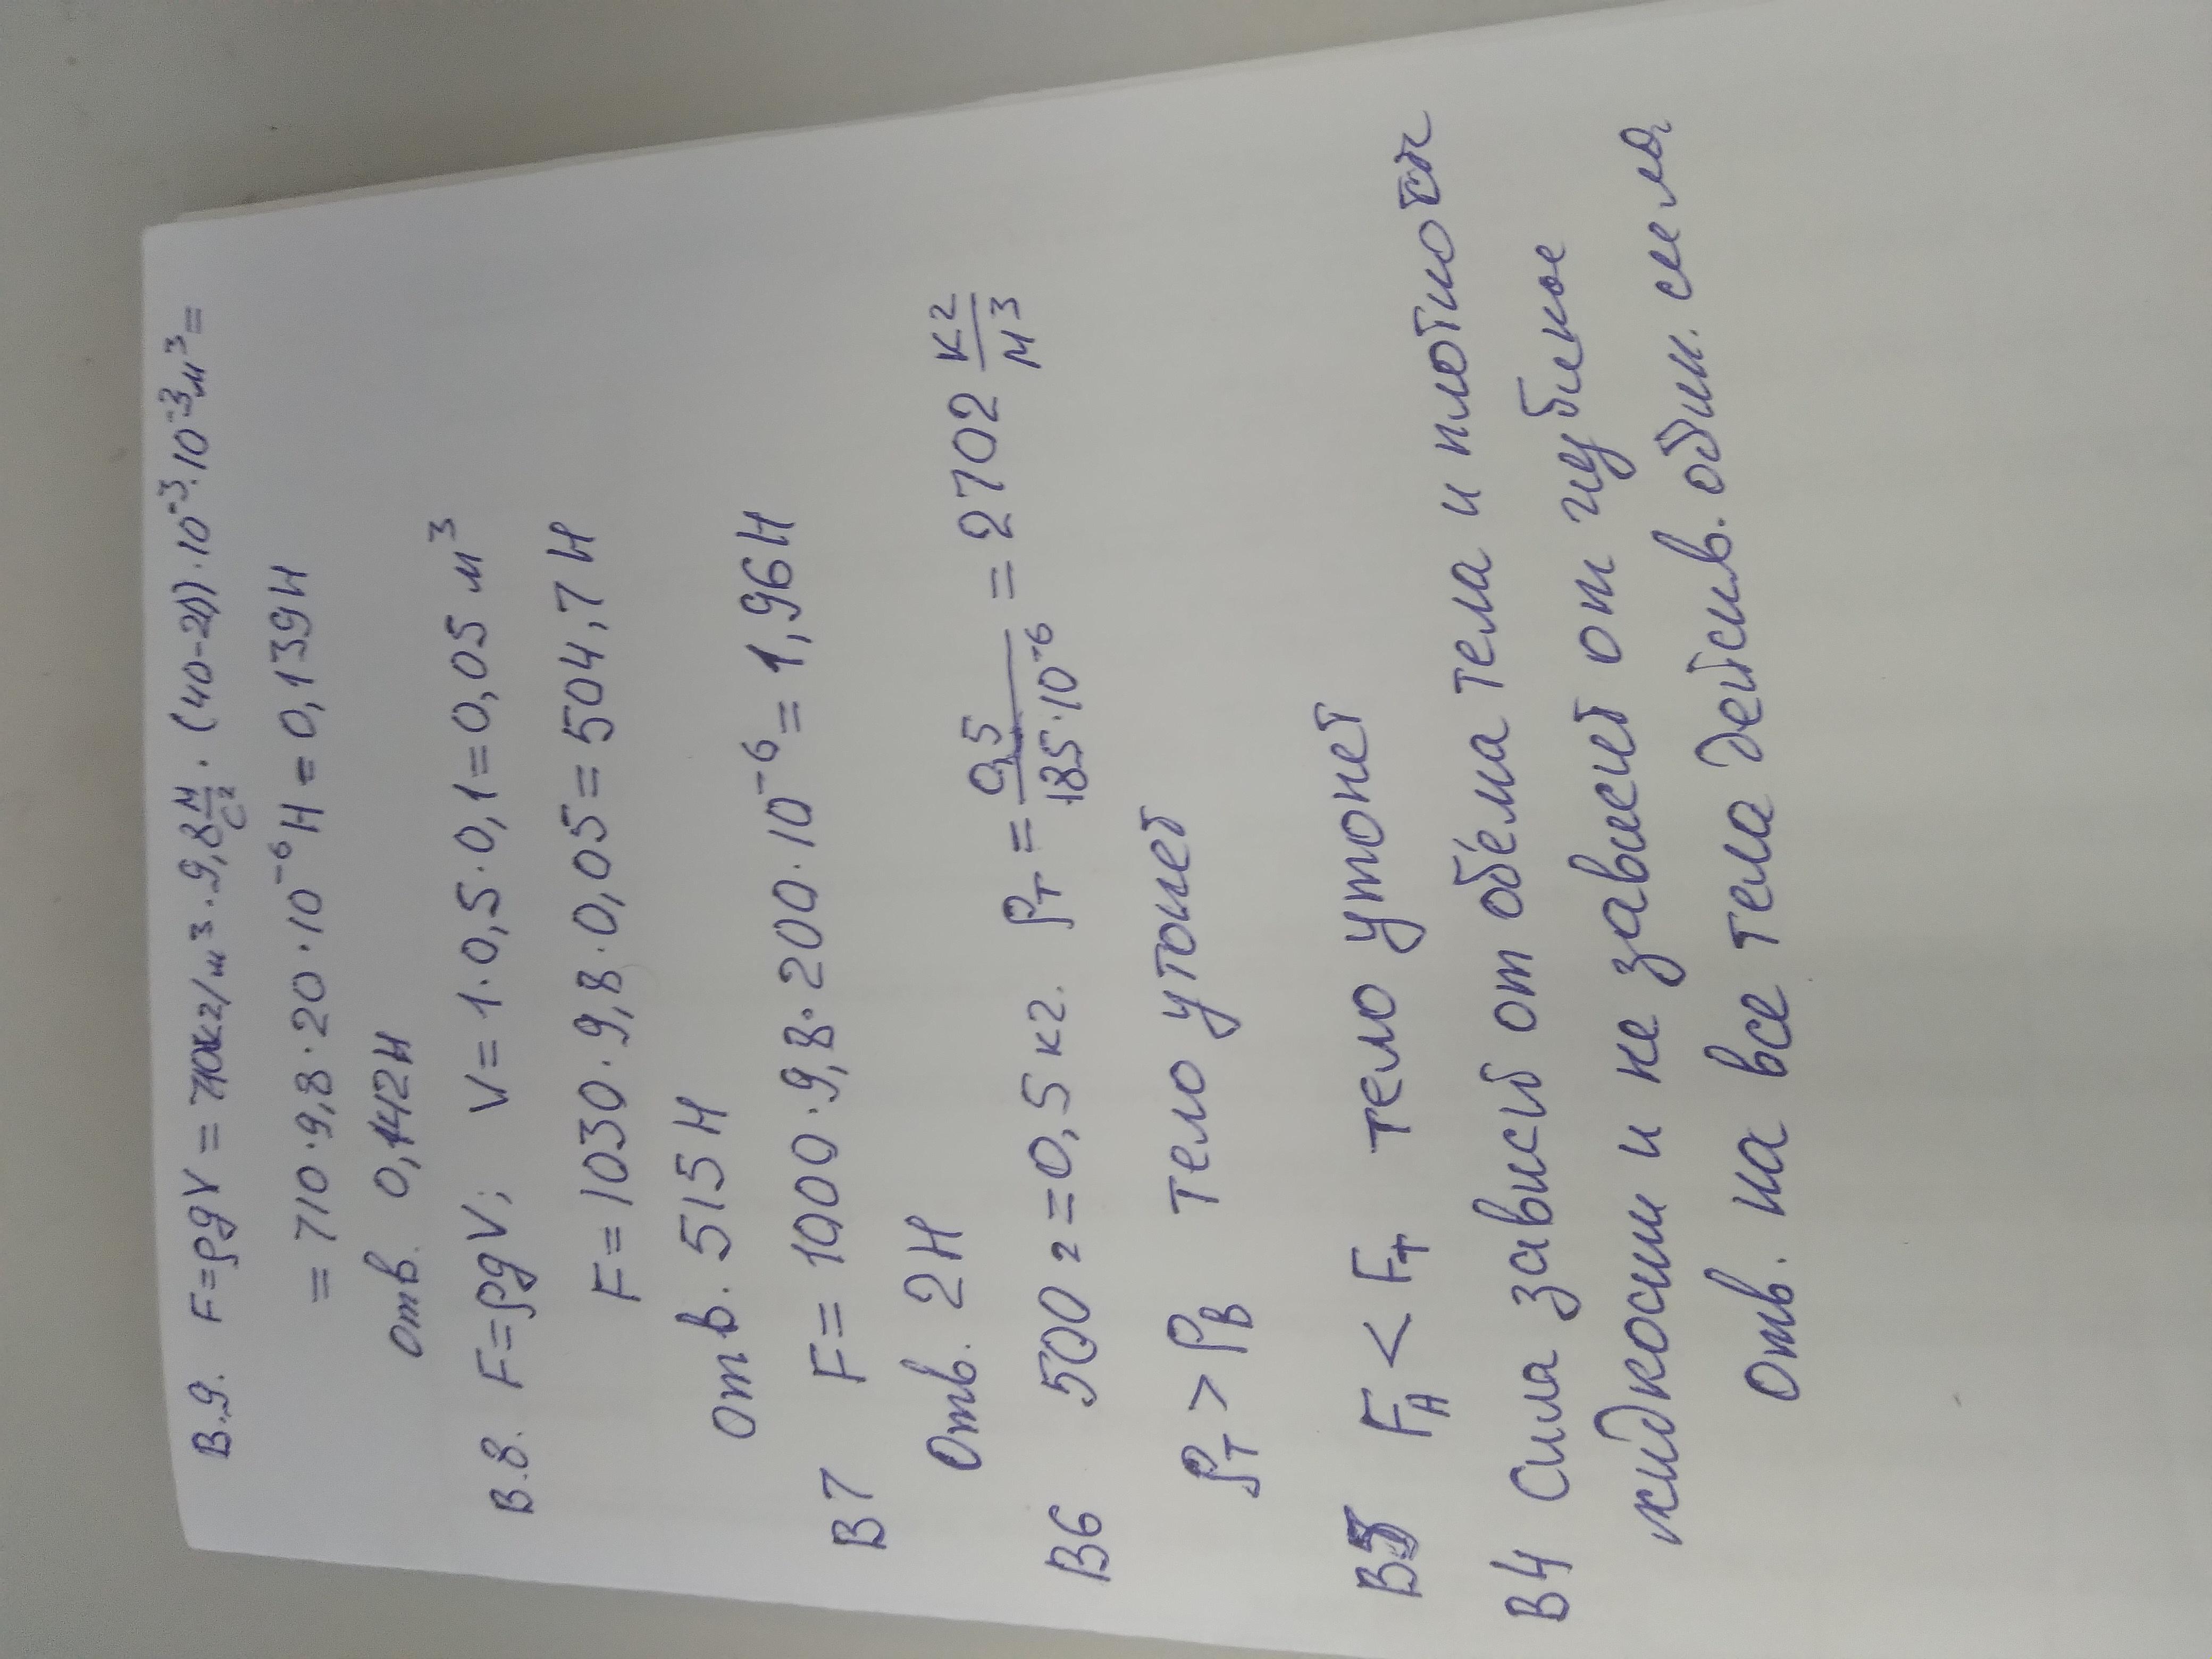 В.9. F=ρgV = 710кг/м³·9,8 м/с²·(40-20)·10⁻³·10⁻³м³=
= 710·9,8·20·10⁻⁶Н = 0,139Н
Отв. 0,142Н
В.8. F=ρgV; V=1·0,5·0,1=0,05 м³
F=1030·9,8·0,05=504,7Н
Отв. 515Н
В7 F=1000·9,8·200·10⁻⁶=1,96Н
Отв. 2Н
В6 500г=0,5кг. ρт = 0,5/185·10⁻⁶ = 2702 кг/м³
ρт > ρв тело утонет
В5 FА < Fт тело утонет
В4 Сила зависит от обёма тела и плотности
жидкости и не зависит от глубины
Отв. на все тела действ. один. сила